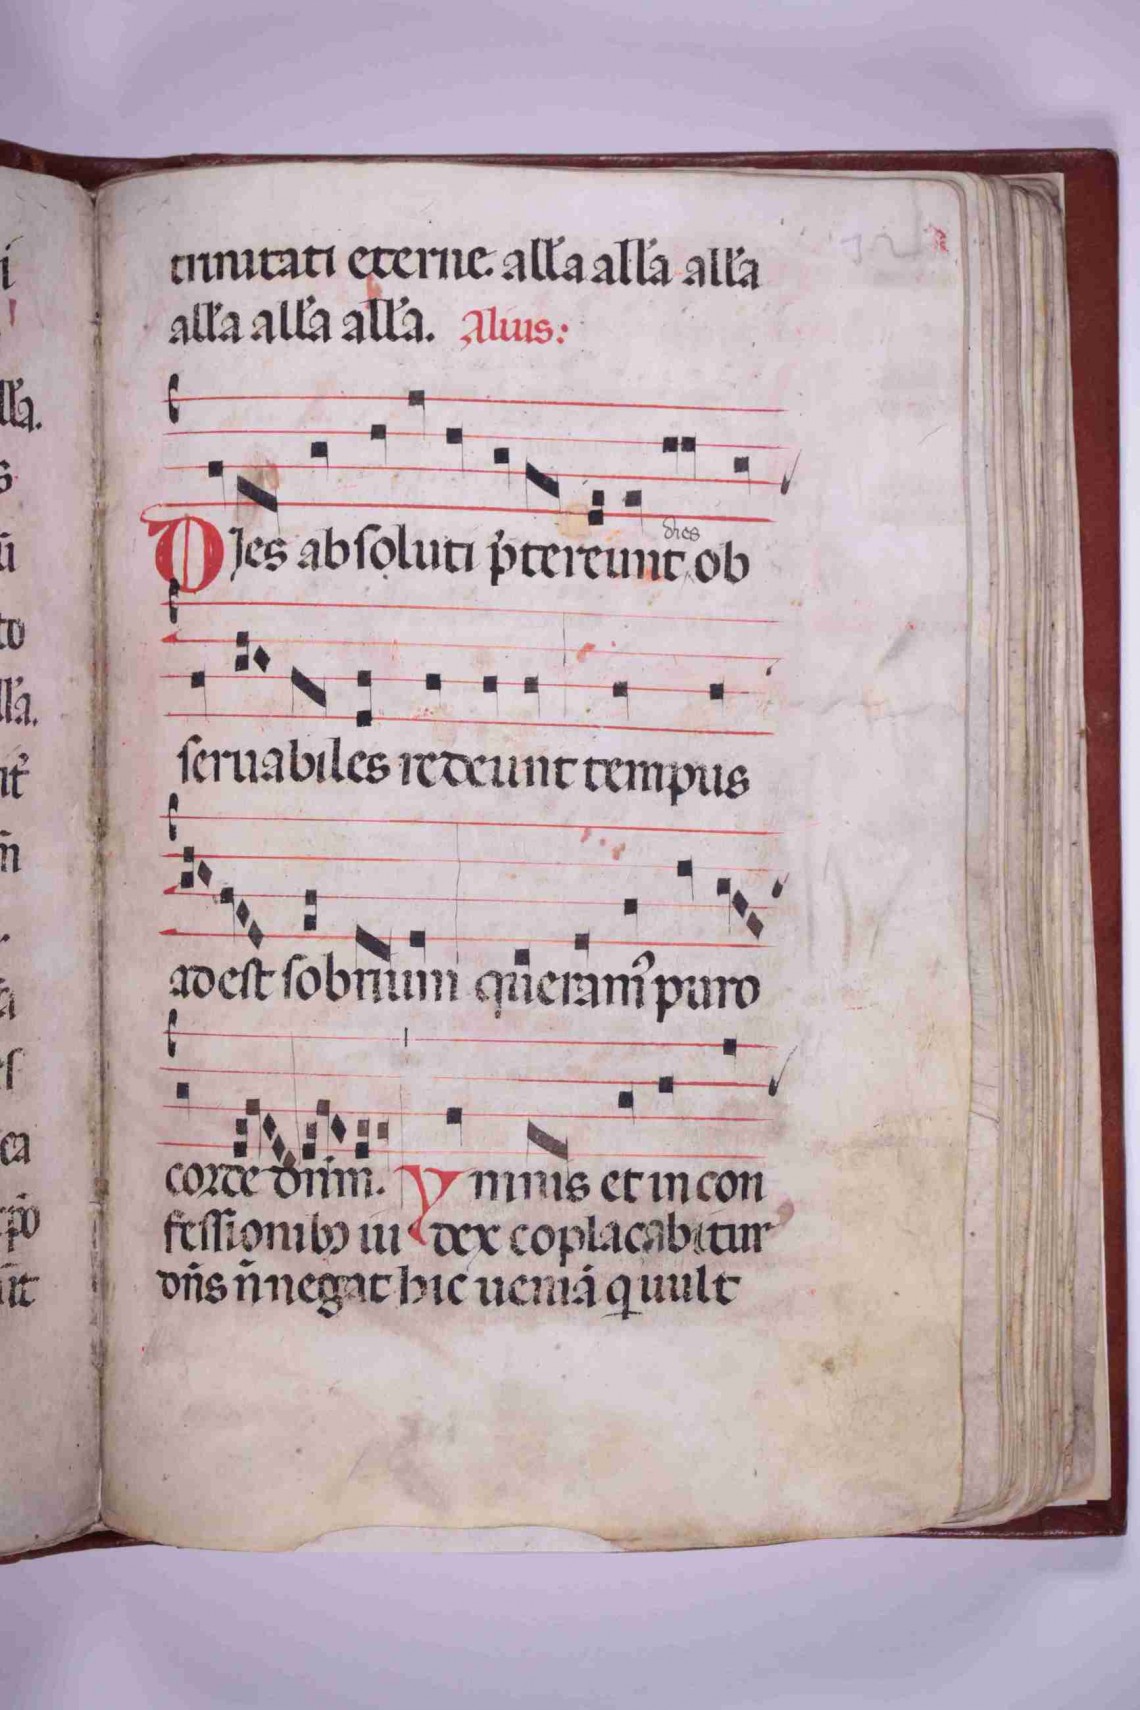 trinitati eterne. all'a all'a all'a
all'a all'a all'a. Alius:
dies
DJes absoluti p̄tereunt ob
seruabiles redeunt tempus
adest sobrium queram᷒ puro
corde dn̄m. Ymnis et in con
fessionibꝫ iu dex coplacabitur
dn̄s n̄ negat hic ueniā q uult